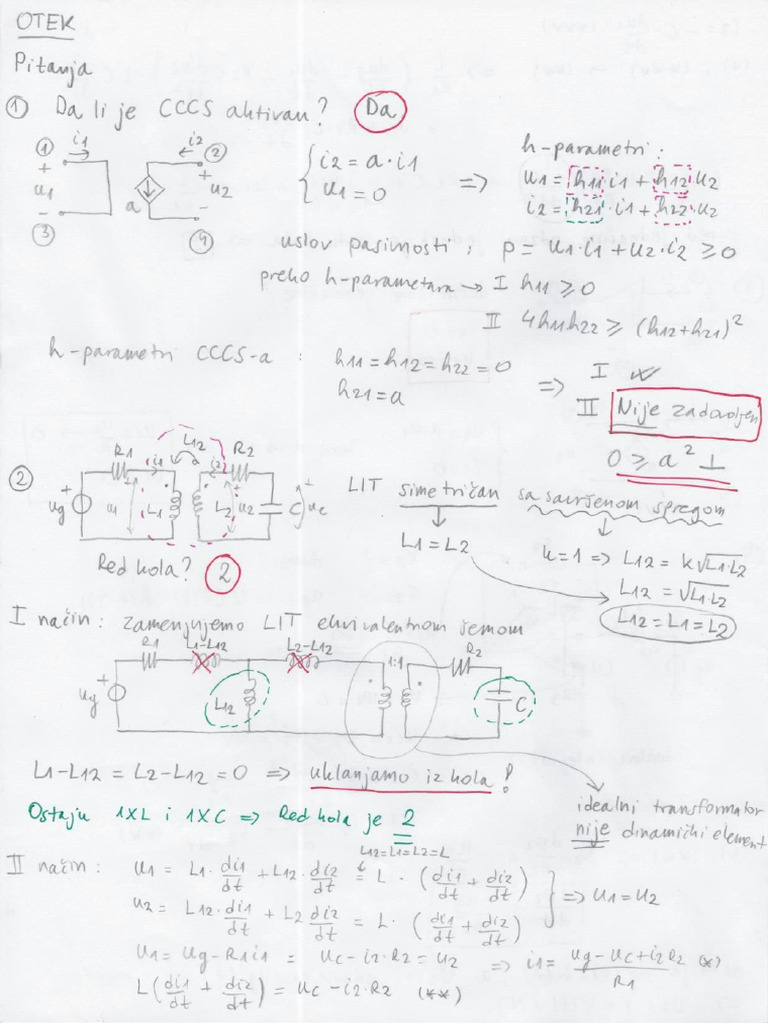 OTEK
Pitanja
① Da li je CCCS aktivan? Da
① i1 i2 ②
+ u1 - a + u2 -
③ ④
{ i2 = a·i1
u1 = 0 =>
h-parametri:
u1 = h11·i1 + h12·u2
i2 = h21·i1 + h22·u2
uslov pasivnosti: p = u1·i1 + u2·i2 ≥ 0
preko h-parametara → I h11 ≥ 0
II 4h11h22 ≥ (h12+h21)²
h-parametri CCCS-a : h11 = h12 = h22 = 0
h21 = a
=> I ✓
II Nije zadovoljen
0 ≥ a² ⊥
② R1 i1 L12 i2 R2
ug + u1 L1 L2 u2 C uc +
Red kola? 2
LIT simetričan sa savršenom spregom
L1 = L2
k=1 => L12 = k√L1·L2
L12 = √L1·L2
L12 = L1 = L2
I način: zamenjujemo LIT ekvivalentnom šemom
R1 L1-L12 L2-L12 1:1 R2
ug + L12 C
L1-L12 = L2-L12 = 0 => uklanjamo iz kola!
idealni transformator
nije dinamički element
Ostaju 1XL i 1XC => Red kola je 2
L12=L1=L2=L
II način: u1 = L1·di1/dt + L12·di2/dt = L·(di1/dt + di2/dt)
u2 = L12·di1/dt + L2 di2/dt = L·(di1/dt + di2/dt)
} => u1 = u2
u1 = ug - R1i1 = uc - i2·R2 = u2 => i1 = (ug - uc + i2R2)/R1 (*)
L(di1/dt + di2/dt) = uc - i2·R2 (**)